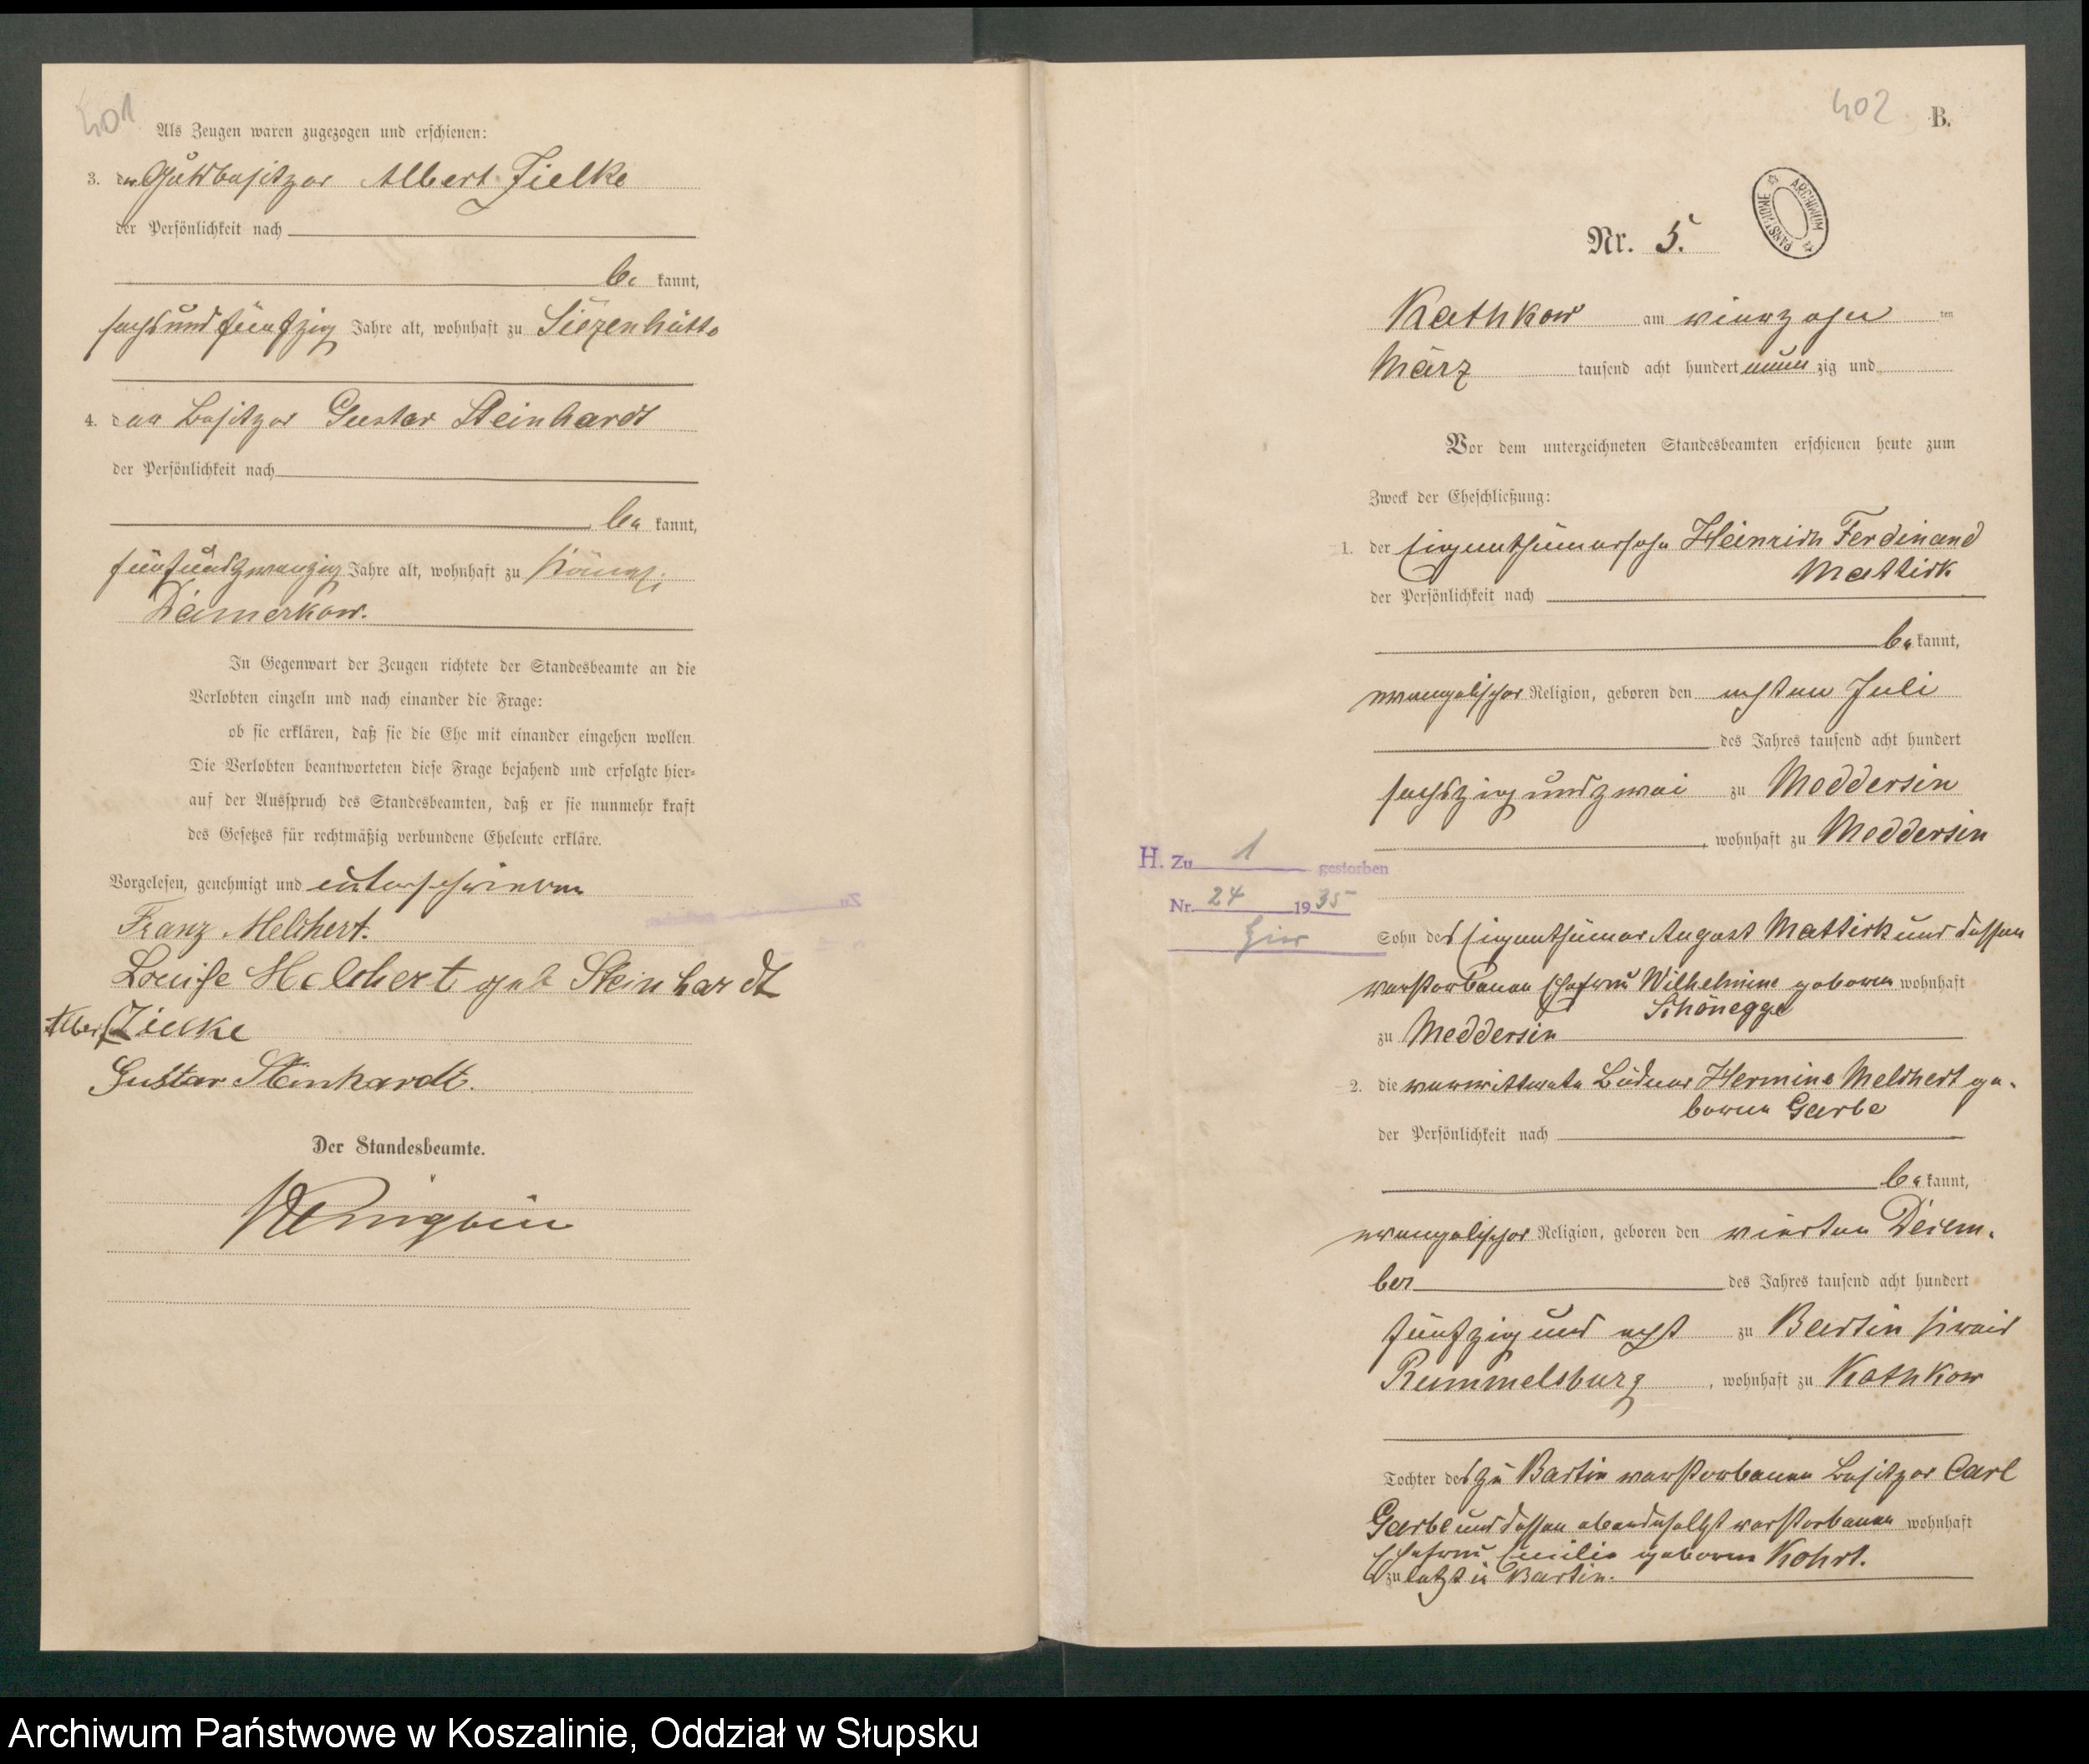 401
Als Zeugen waren zugezogen und erschienen:
3. der Gutsbesitzer Albert Zielke
der Persönlichkeit nach
be kannt,
sechsundfünfzig Jahre alt, wohnhaft zu
4. der Besitzer Gustav Steinhardt
der Persönlichkeit nach
be kannt,
fünfundzwanzig Jahre alt, wohnhaft zu
Damerkow.
In Gegenwart der Zeugen richtete der Standesbeamte an die
Verlobten einzeln und nach einander die Frage:
ob sie erklären, daß sie die Ehe mit einander eingehen wollen.
Die Verlobten beantworteten diese Frage bejahend und erfolgte hier-
auf der Ausspruch des Standesbeamten, daß er sie nunmehr kraft
des Gesetzes für rechtmäßig verbundene Eheleute erkläre.
Vorgelesen, genehmigt und unterschrieben
Franz Melchert.
Louise Melchert geb Steinhardt
Albert Zielke
Gustav Steinhardt.
Der Standesbeamte.
402 B.
ARCHIWUM PAŃSTWOWE
Nr. 5.
Kathkow am vierzehn ten
März tausend acht hundert neun zig und
Vor dem unterzeichneten Standesbeamten erschienen heute zum
Zweck der Eheschließung:
1. der Eigenthümersohn Heinrich Ferdinand
Mattick
der Persönlichkeit nach
be kannt,
evangelischer Religion, geboren den achten Juli
des Jahres tausend acht hundert
sechszig und zwei zu Moddersin
, wohnhaft zu Moddersin
H. Zu 1 gestorben
Nr. 24 1935
hier
Sohn des Eigenthümer August Mattick und dessen
verstorbenen Ehefrau Wilhelmine geboren wohnhaft
Schönegge
zu Meddersin
2. die verwittwete Büdner Hermine Melchert ge-
boren Garbe
der Persönlichkeit nach
be kannt,
evangelischer Religion, geboren den vierten Dezem-
ber des Jahres tausend acht hundert
fünfzig und acht zu Bartin Kreis
Rummelsburg , wohnhaft zu Kathkow
Tochter des zu Bartin verstorbenen Besitzer Carl
Garbe und dessen ebendaselbst verstorbenen wohnhaft
Ehefrau Emilie geboren Kohrt.
zu letzt in Bartin.
Archiwum Państwowe w Koszalinie, Oddział w Słupsku